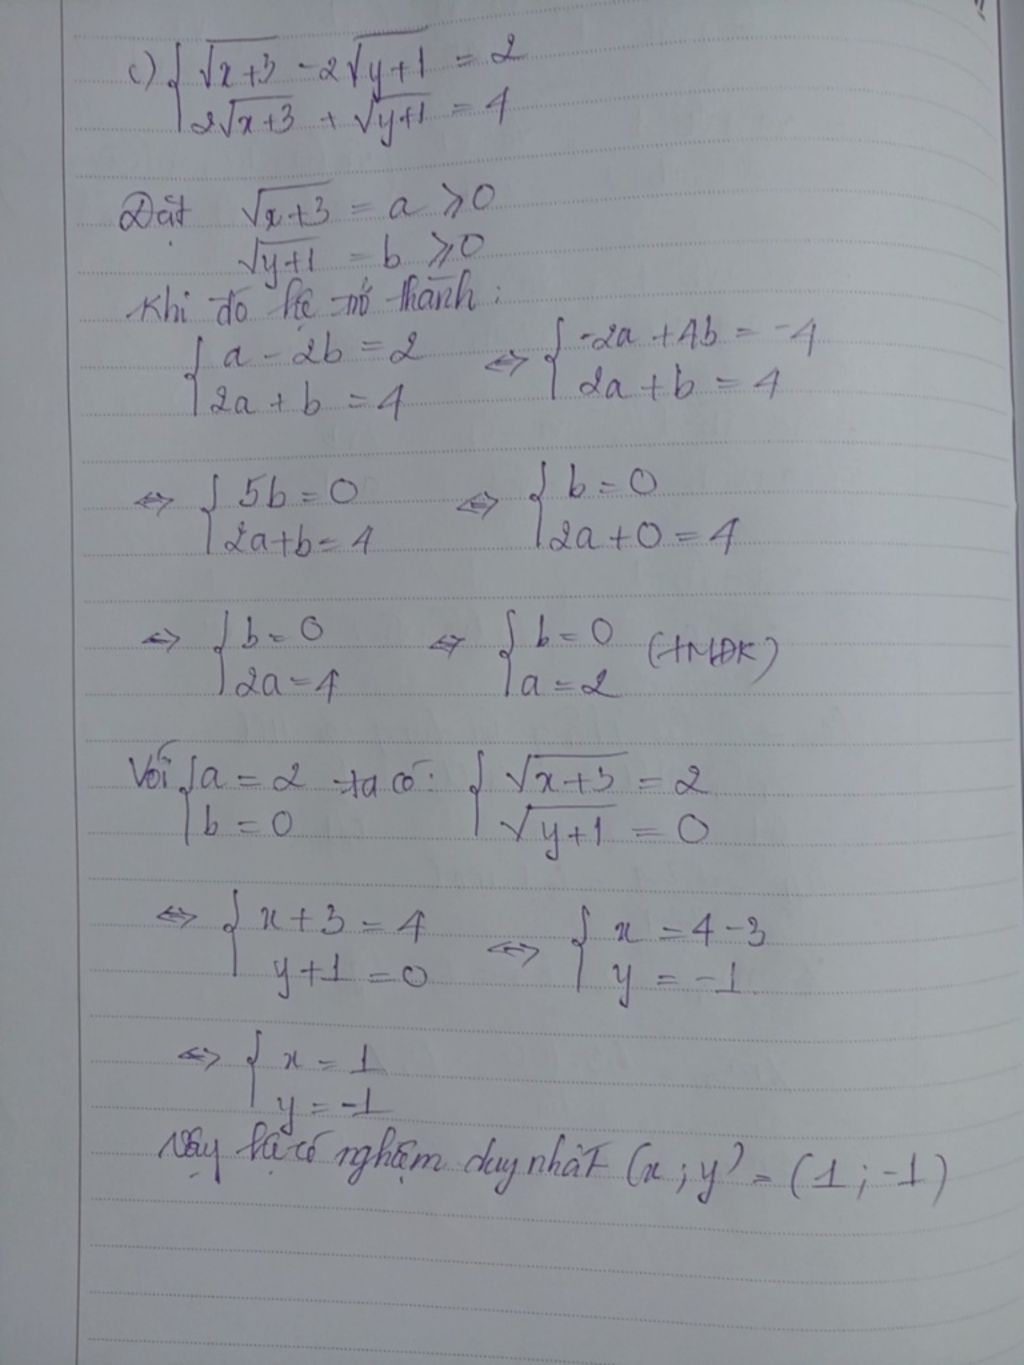 c) { √x+3 - 2√y+1 = 2
2√x+3 + √y+1 = 4
Đặt √x+3 = a ⩾ 0
√y+1 = b ⩾ 0
Khi đó hệ trở thành:
{ a - 2b = 2 ⇔ { -2a + 4b = -4
2a + b = 4 2a + b = 4
⇔ { 5b = 0 ⇔ { b = 0
2a+b = 4 2a + 0 = 4
⇔ { b = 0 ⇔ { b = 0 (TMĐK)
2a = 4 a = 2
Với { a = 2 ta có: { √x+3 = 2
b = 0 √y+1 = 0
⇔ { x + 3 = 4 ⇔ { x = 4 - 3
y + 1 = 0 y = -1
⇔ { x = 1
y = -1
Vậy hệ có nghiệm duy nhất (x ; y) = (1 ; -1)